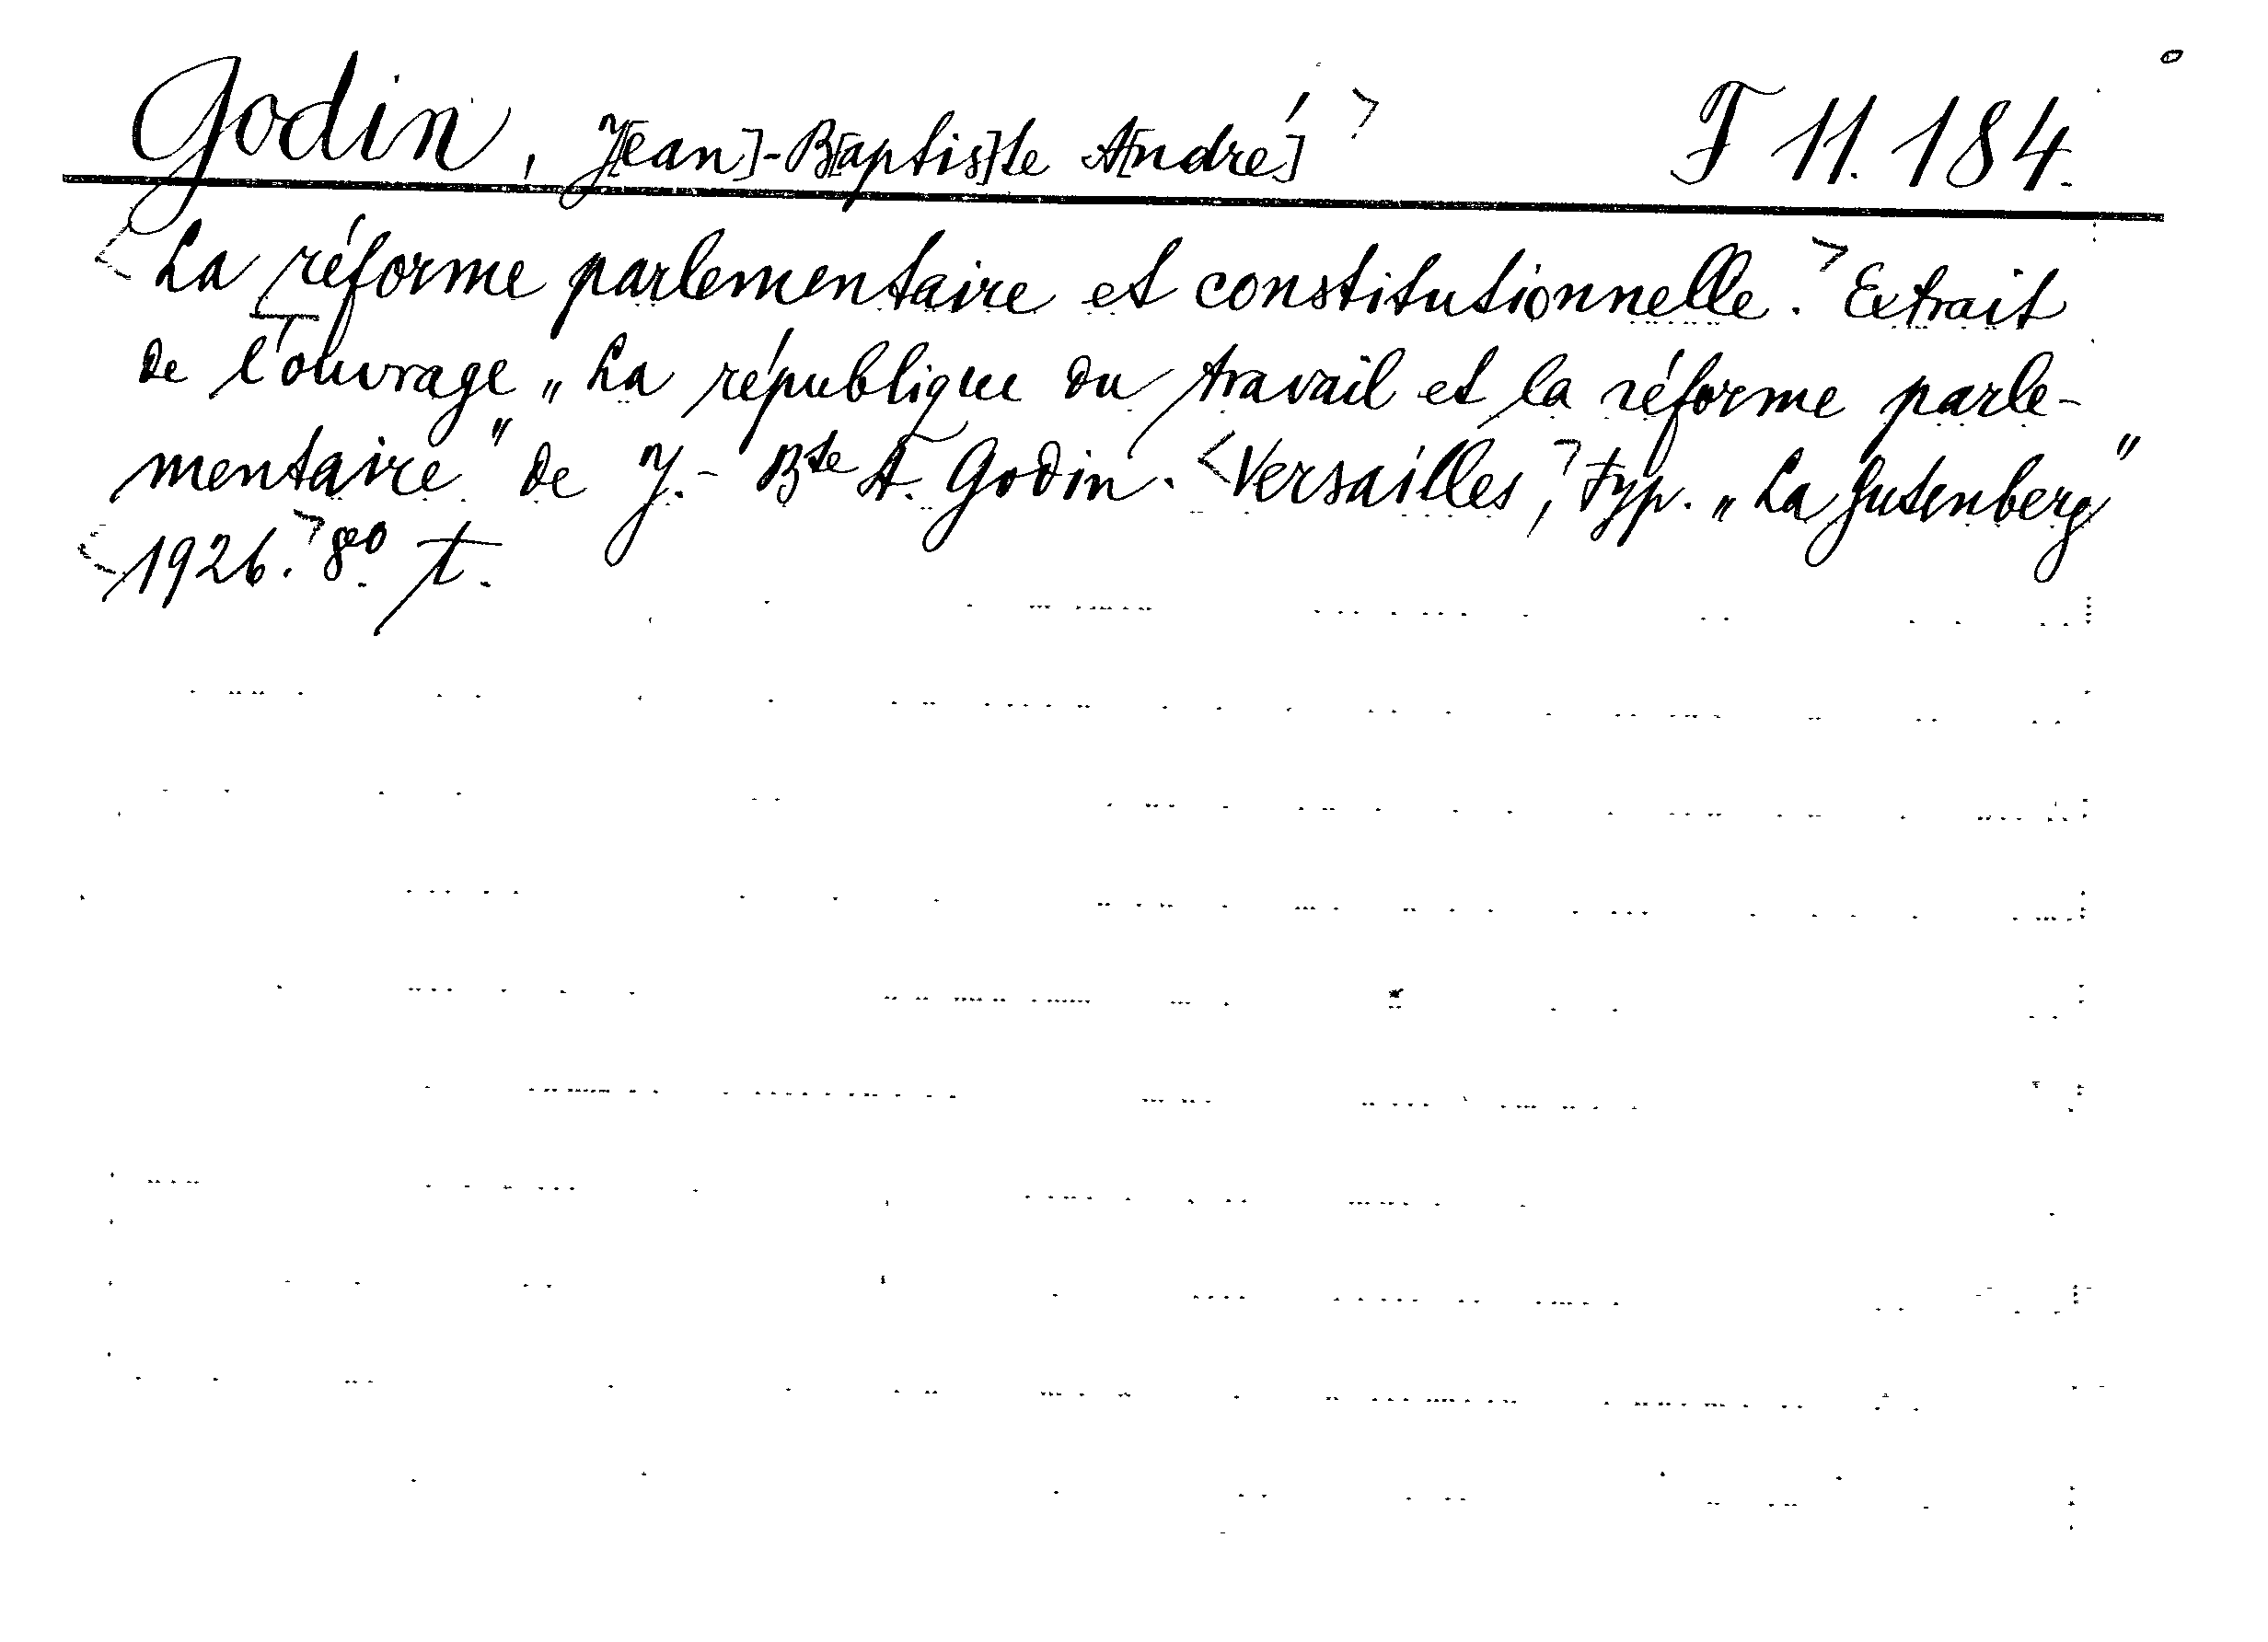 Godin, J[ean]-B[aptis]te A[ndré] > F 11.184.
<La réforme parlementaire et constitutionnelle.> Extrait
de l'ouvrage „La république du travail et la réforme parle-
mentaire" de J.- Bte A. Godin. <Versailles,> typ. „La Gutenberg"
<1926.> 8vo T.